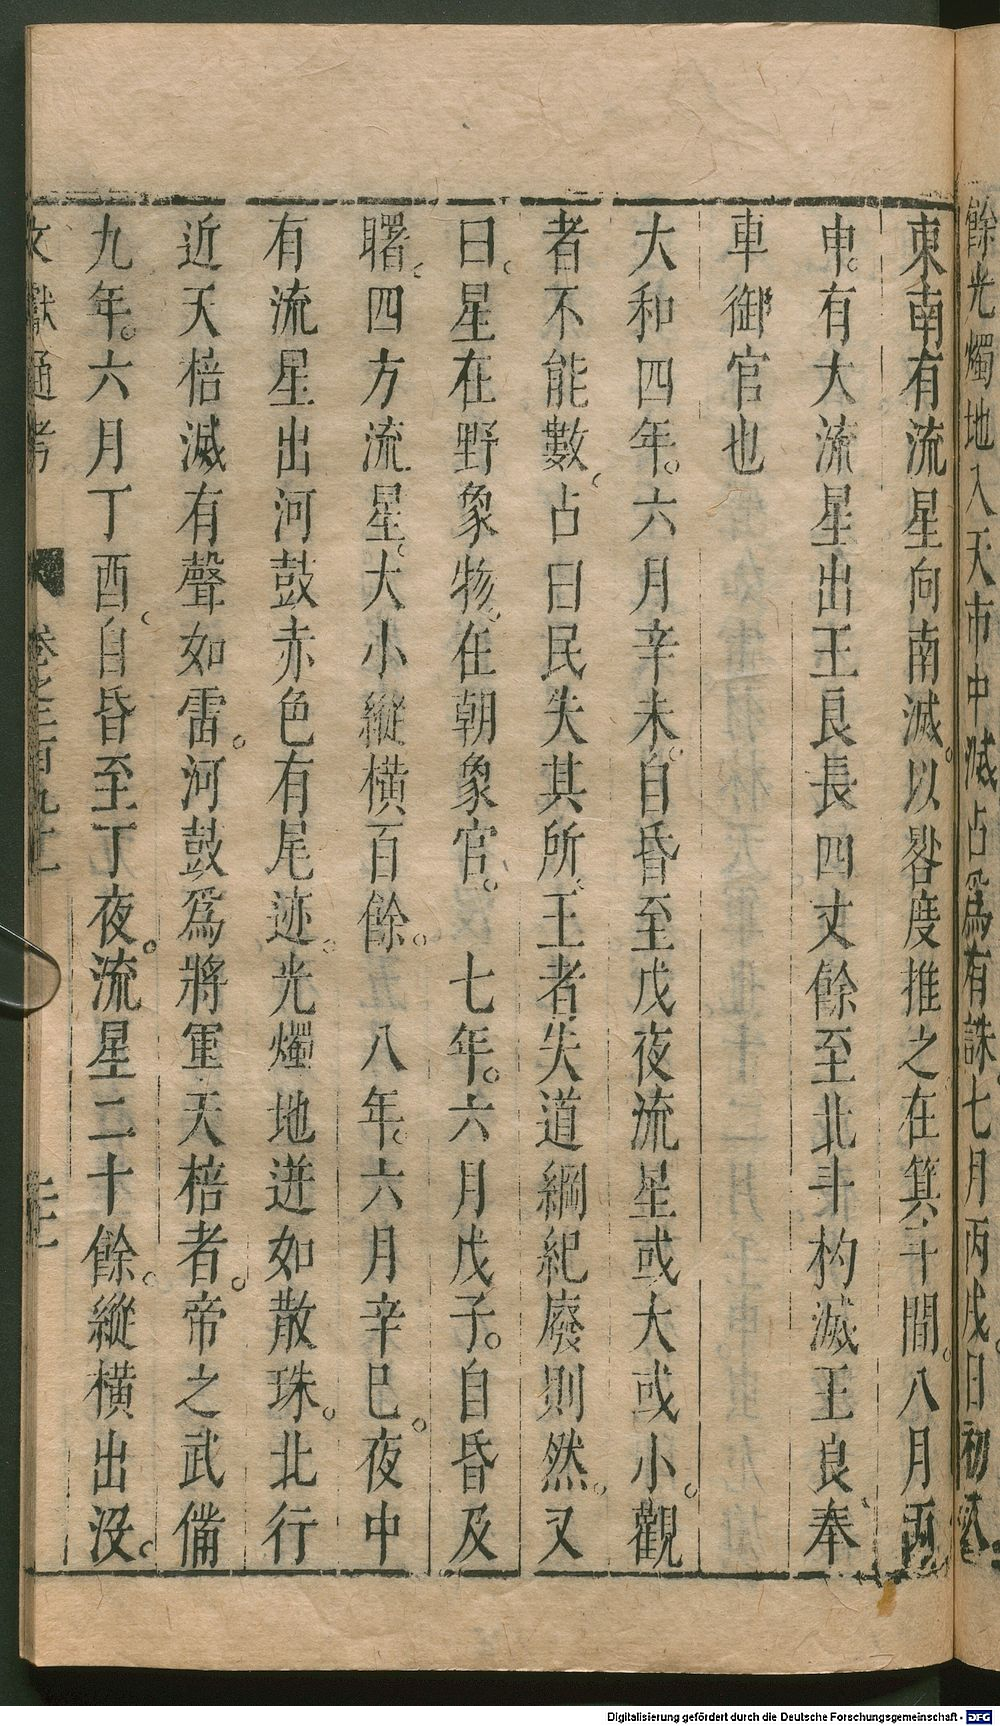 餘光燭地入天市中滅占爲有誅七月丙戌日初
東南有流星向南滅。以晷度推之在箕斗間。八月丙
申。有大流星出王良長四丈餘至北斗杓滅王良奉
車御官也
大和四年。六月辛未。自昏至戊夜流星或大或小。觀
者不能數。占曰民失其所。王者失道綱紀廢則然。又
曰。星在野象物。在朝象官。七年。六月戊子。自昏及
曙。四方流星。大小縱橫百餘。八年。六月辛巳。夜中
有流星出河鼓赤色有尾迹。光燭地迸如散珠。北行
近天棓滅有聲如雷。河鼓爲將軍天棓者。帝之武備
九年。六月丁酉。自昏至丁夜。流星二十餘。縱橫出沒。
文獻通考 卷之二百九十一
Digitalisierung gefördert durch die Deutsche Forschungsgemeinschaft - DFG